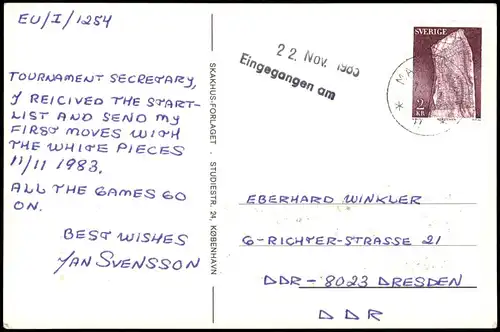 EU/I/1254
TOURNAMENT SECRETARY,
I REICIVED THE START-
LIST AND SEND MY
FIRST MOVES WITH
THE WHITE PIECES
11/11 1983.
ALL THE GAMES GO
ON.
BEST WISHES
JAN SVENSSON
SKAKHUS-FORLAGET . STUDIESTR. 24, KØBENHAVN
22. Nov. 1983
Eingegangen am
SVERIGE
2
KR
EBERHARD WINKLER
G-RICHTER-STRASSE 21
DDR-8023 DRESDEN
DDR